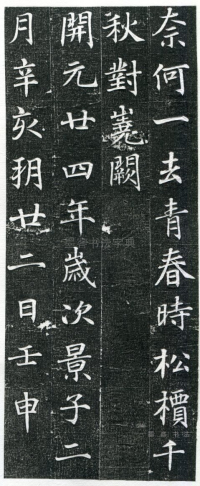 奈何一去青春時松檟千
秋對嶤闕
開元廿四年歲次景子二
月辛亥朔廿二日壬申